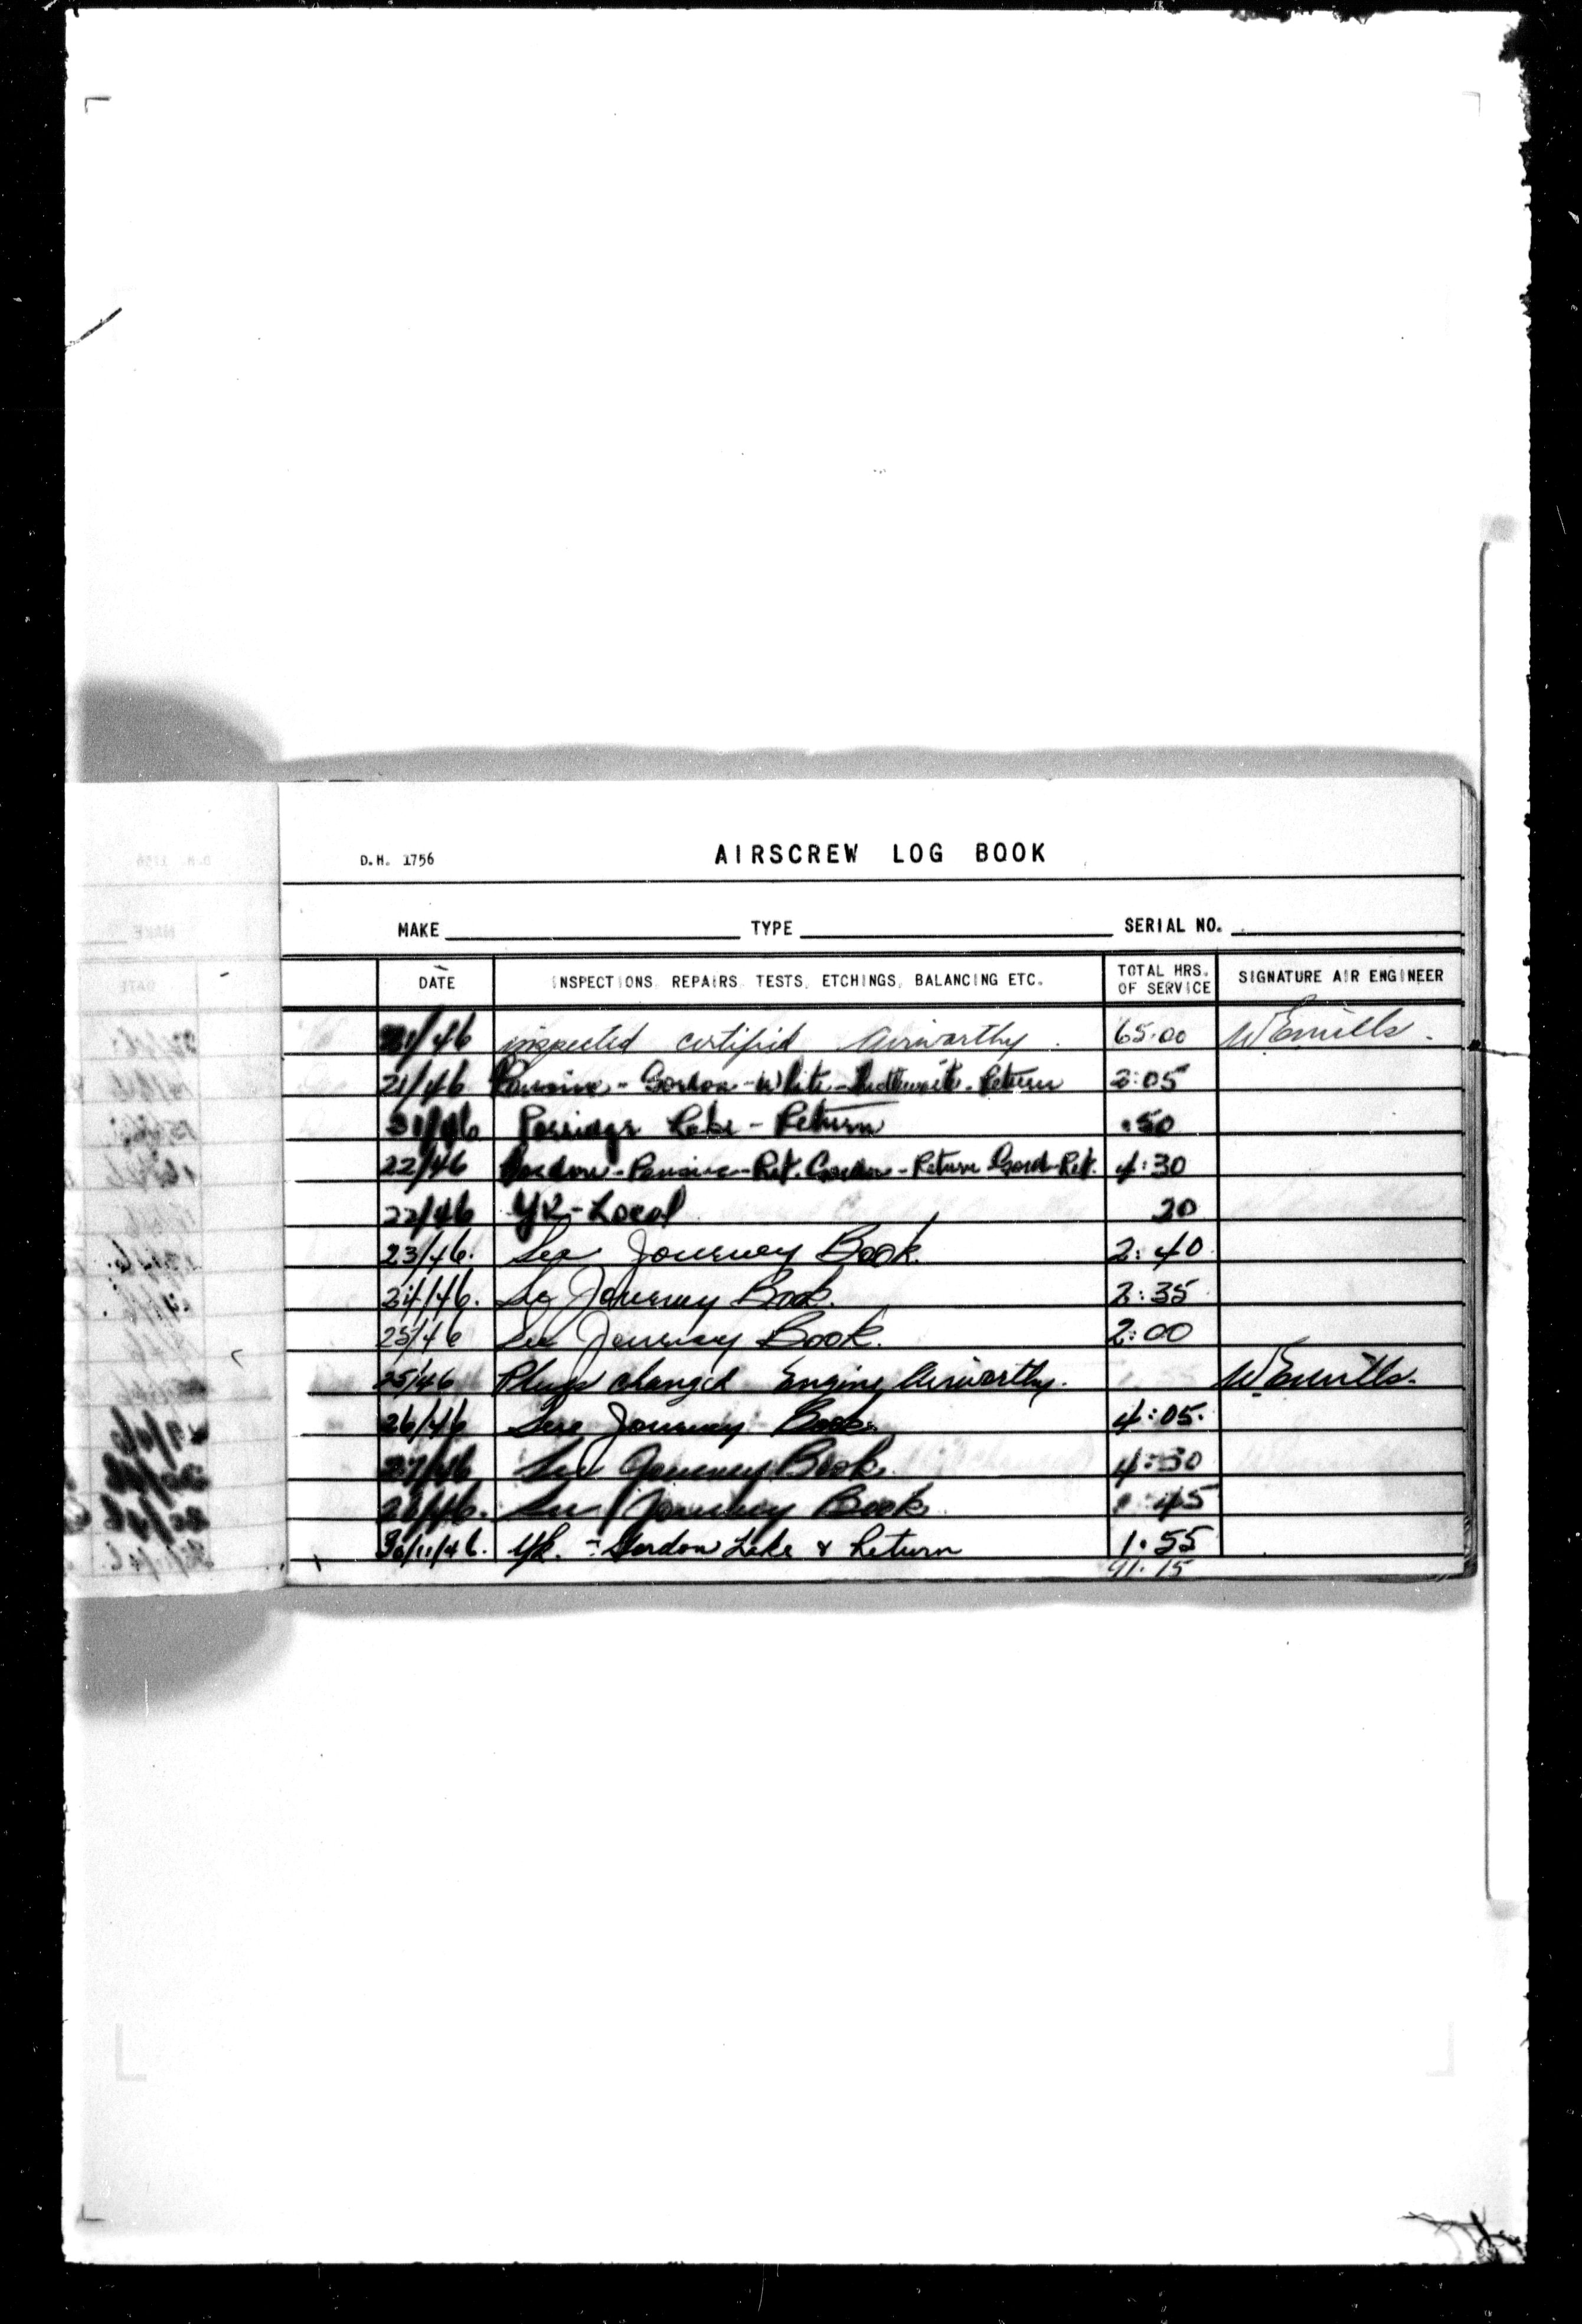 D.H. 1756 AIRSCREW LOG BOOK
MAKE TYPE SERIAL NO.
DATE INSPECTIONS, REPAIRS, TESTS, ETCHINGS, BALANCING ETC. TOTAL HRS. OF SERVICE SIGNATURE AIR ENGINEER
21/46 inspected certified airworthy. 65:00
21/46 Gordon - White - Return 2:05
21/46 Lake - Return :50
22/46 Gordon - Pensive - Ret. Gordon - Return Gord - Ret. 4:30
22/46 YK - Local 20
23/46. See Journey Book. 2:40
24/46. See Journey Book. 2:35
25/46 See Journey Book. 2:00
25/46 Plugs changed Engine Airworthy.
26/46 See Journey Book. 4:05.
27/46 See Journey Book. 4:30
28/46. See Journey Book 1:45
30/11/46. YK. - Gordon Lake & Return 1:55
91:15